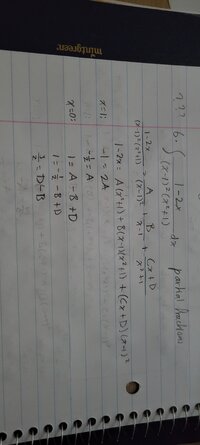 mintgreen
n?? 6. ∫ 1-2x / (x-1)²(x²+1) dx partial fractions
1-2x / (x-1)²(x²+1) = A / (x-1)² + B / x-1 + Cx+D / x²+1
1-2x = A(x²+1) + B(x-1)(x²+1) + (Cx+D)(x-1)²
x=1: -1 = 2A
-½ = A
x=0: 1 = A - B + D
1 = -½ - B + D
3/2 = D - B